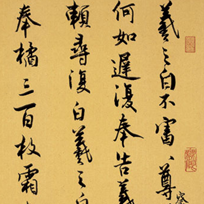 羲之白不審尊
察
何如遲復奉告羲
賴尋復白羲之白
奉橘三百枚霜